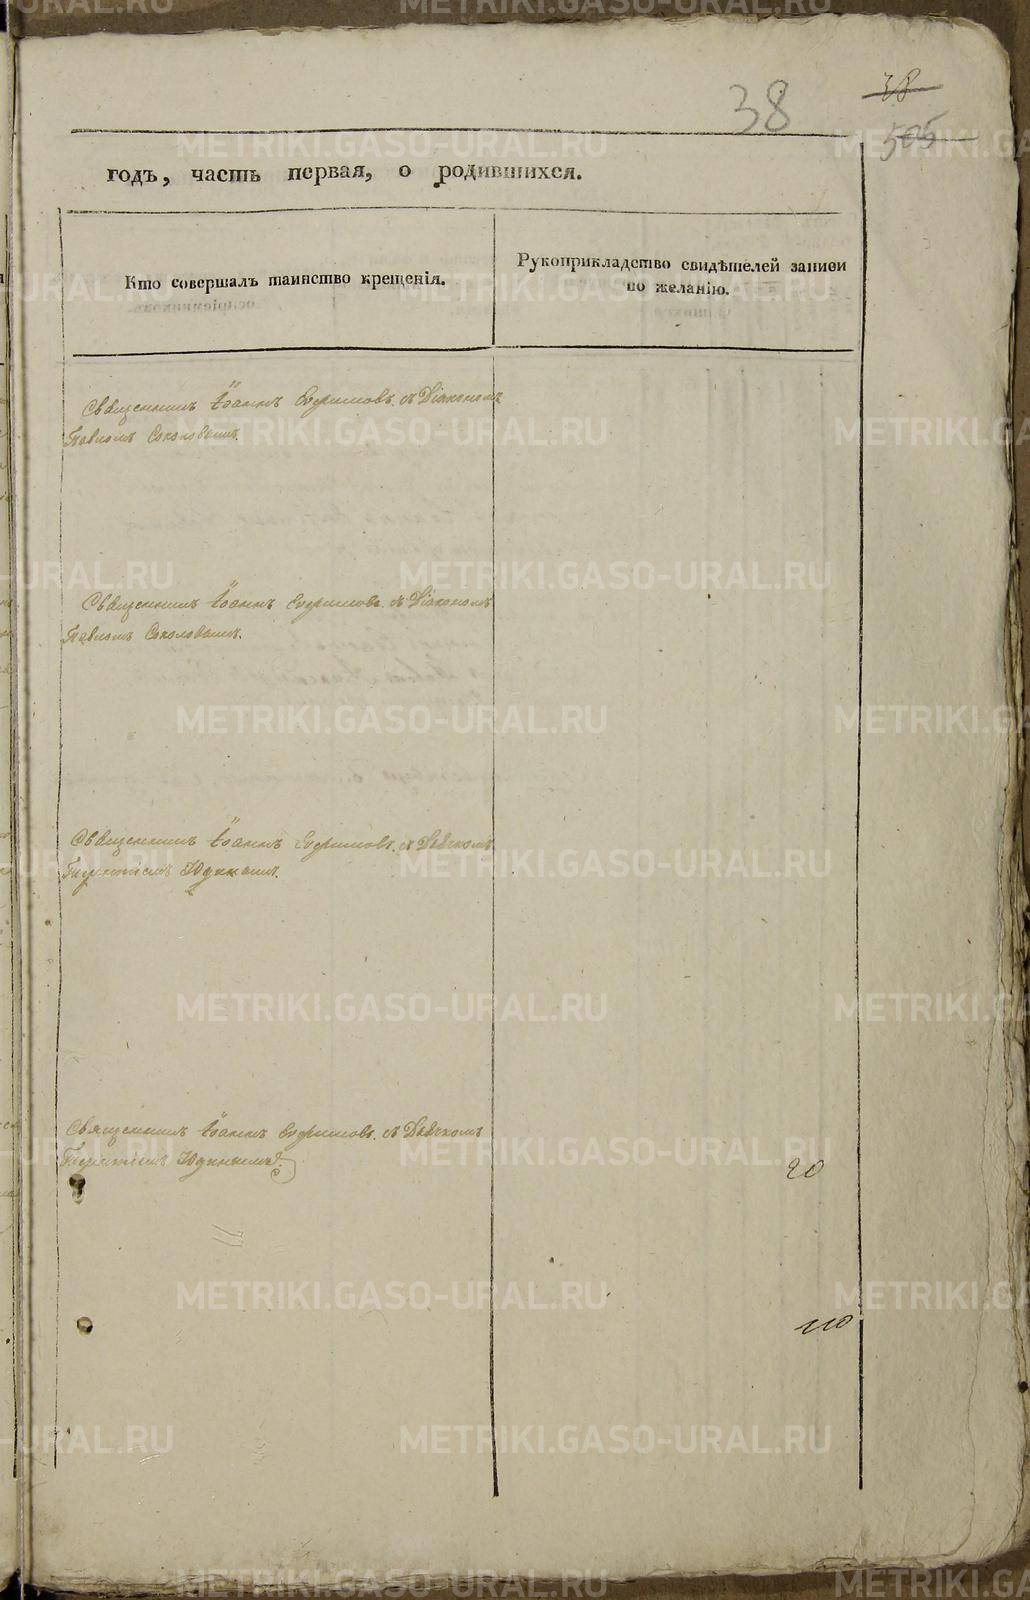 38
38
505
годъ, часть первая, о родившихся.
Кто совершалъ таинство крещенія.
Рукоприкладство свидѣтелей записи
по желанію.
Священникъ Іоаннъ Ефимовъ съ Діакономъ
Павломъ Соколовымъ.
Священникъ Іоаннъ Ефимовъ съ Діакономъ
Павломъ Соколовымъ.
Священникъ Іоаннъ Ефимовъ съ Дьячкомъ
Юдинымъ.
Священникъ Іоаннъ Ефимовъ съ Дьячкомъ
Юдинымъ.
20
METRIKI.GASO-URAL.RU